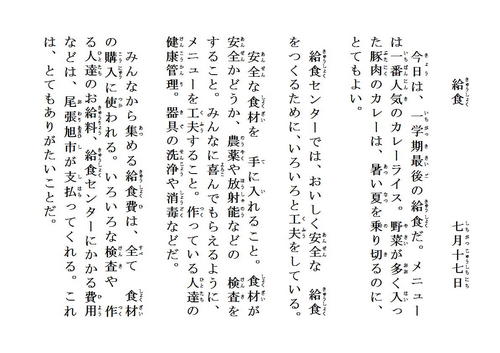 給食　　　七月十七日
今日は、一学期最後の給食だ。メニュー
は一番人気のカレーライス。野菜が多く入っ
た豚肉のカレーは、暑い夏を乗り切るのに、
とてもよい。
給食センターでは、おいしく安全な　給食
をつくるために、いろいろと工夫をしている。
安全な食材を　手に入れること。食材が
安全かどうか、農薬や放射能などの　検査を
すること。みんなに喜んでもらえるように、
メニューを工夫すること。作っている人達の
健康管理。器具の洗浄や消毒などだ。
みんなから集める給食費は、全て　食材
の購入に使われる。いろいろな検査や　作
る人達のお給料、給食センターにかかる費用
などは、尾張旭市が支払ってくれる。これ
は、とてもありがたいことだ。